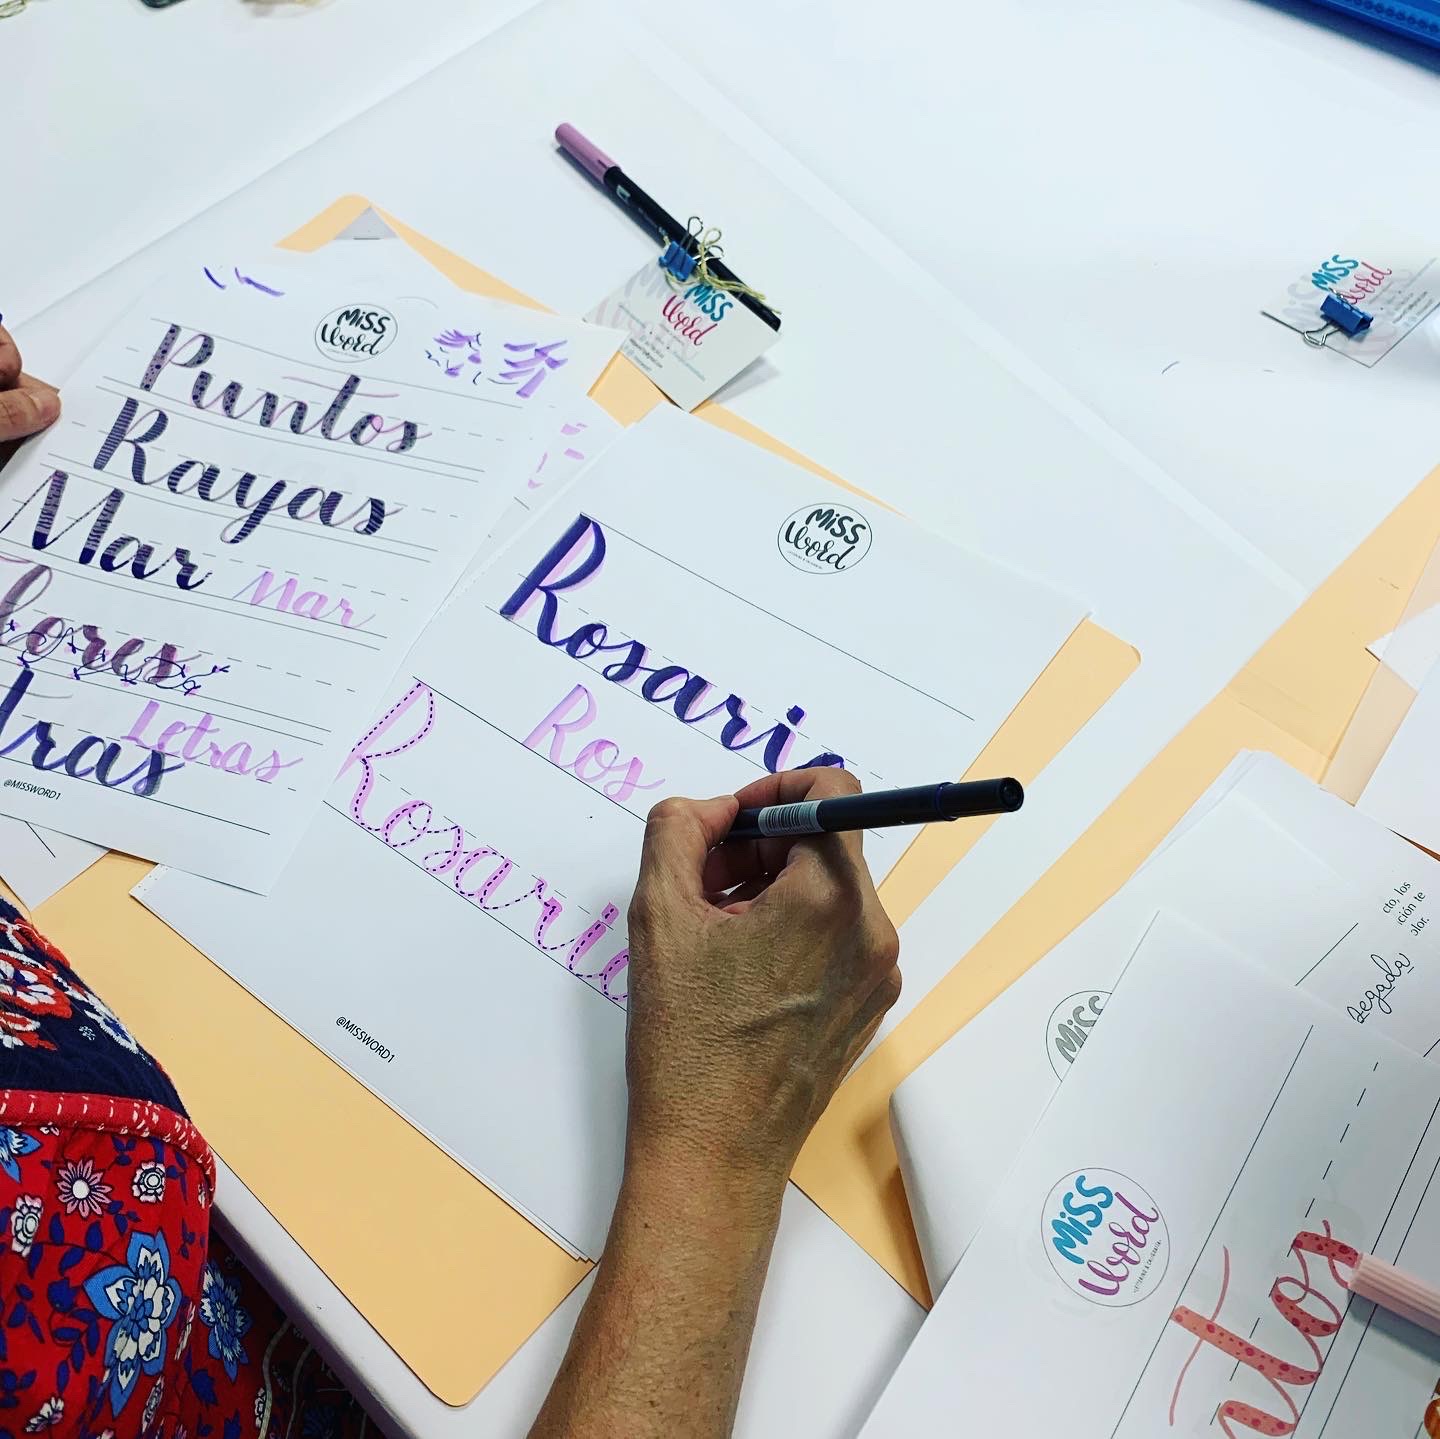 MISS
word
Puntos
Rayas
Mar
Mar
flores
Letras
tras
@MISSWORD1
MISS
word
MISS
word
Rosario
Ros
Rosario
@MISSWORD1
MISS
word
cto, los
ción te
olor.
Degada
MISS
MISS
word
ntos